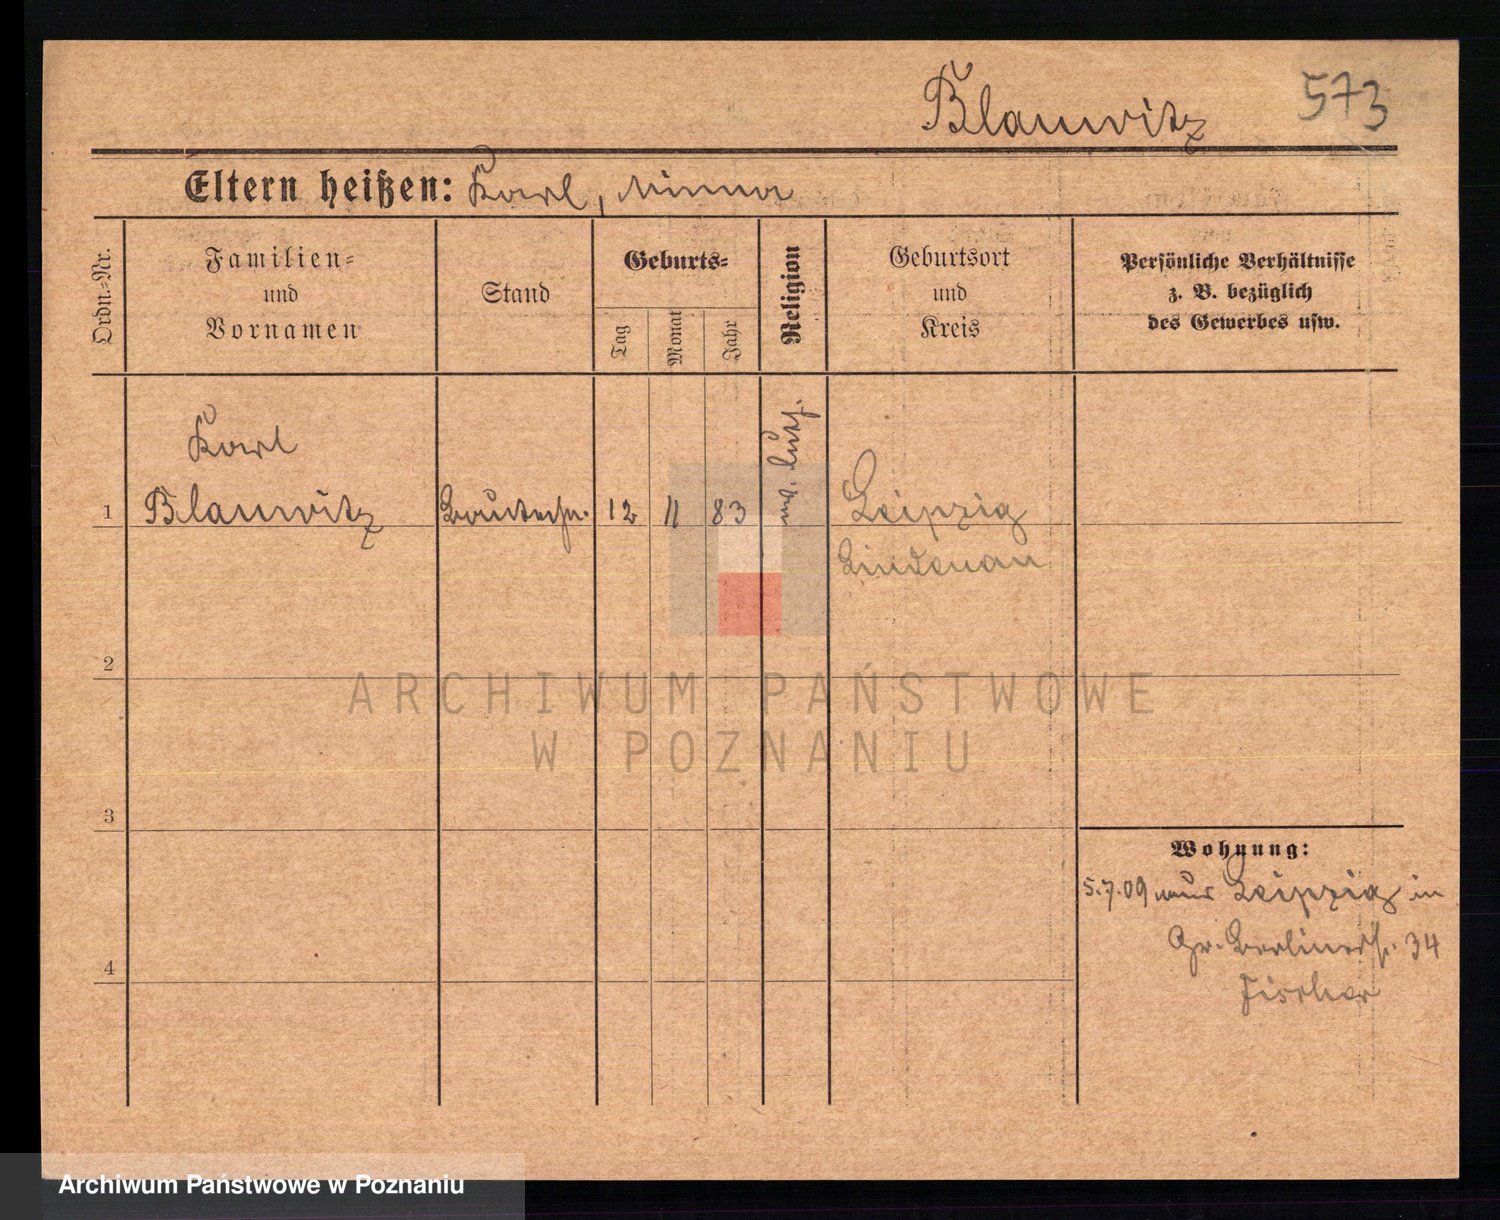 Blauwitz 573
Eltern heißen: Karl, Minna
Ordn.-Nr.
Familien-
und
Vornamen
Stand
Geburts-
Tag
Monat
Jahr
Religion
Geburtsort
und
Kreis
Persönliche Verhältnisse
z. B. bezüglich
des Gewerbes usw.
Karl
1 Blauwitz Bautechn. 12 11 83 luth. Leipzig
Lindenau
2
3
4
Wohnung:
5.7.09 aus Leipzig in
Gr. Berlinerstr. 34
Fischer
ARCHIWUM PAŃSTWOWE
W POZNANIU
Archiwum Państwowe w Poznaniu